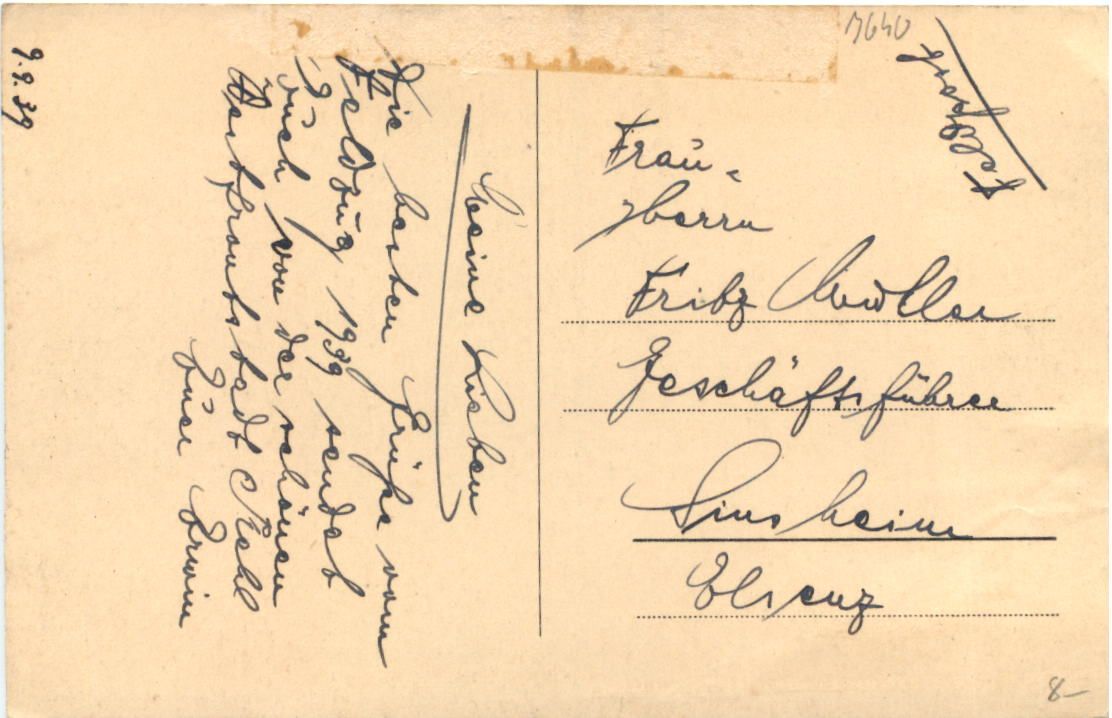 9.9.39
Meine Lieben
Die besten Grüße vom
Feldzug 1939 sendet
Euch von der schönen
Westfrontstadt Kehl
Euer Erwin
7640
Feldpost
Frau u.
Herrn
Fritz Müller
Geschäftsführer
Sinsheim
Elsenz
8-